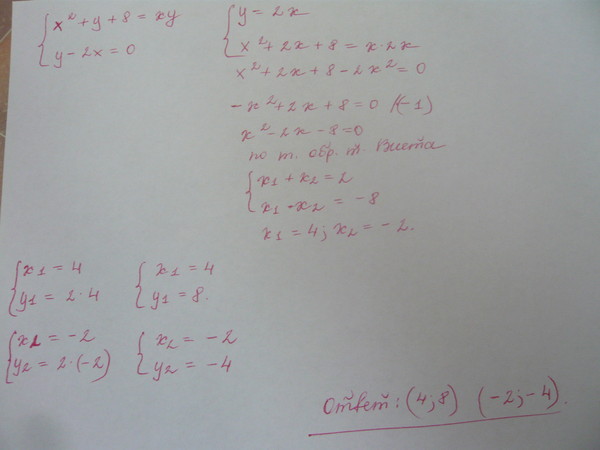 { x² + y + 8 = xy
{ y - 2x = 0
{ y = 2x
{ x² + 2x + 8 = x · 2x
x² + 2x + 8 - 2x² = 0
-x² + 2x + 8 = 0 /(-1)
x² - 2x - 8 = 0
по т. обр. т. Виета
{ x1 + x2 = 2
{ x1 · x2 = -8
x1 = 4; x2 = -2.
{ x1 = 4
{ y1 = 2·4
{ x1 = 4
{ y1 = 8.
{ x2 = -2
{ y2 = 2·(-2)
{ x2 = -2
{ y2 = -4
Ответ: (4;8) (-2;-4).